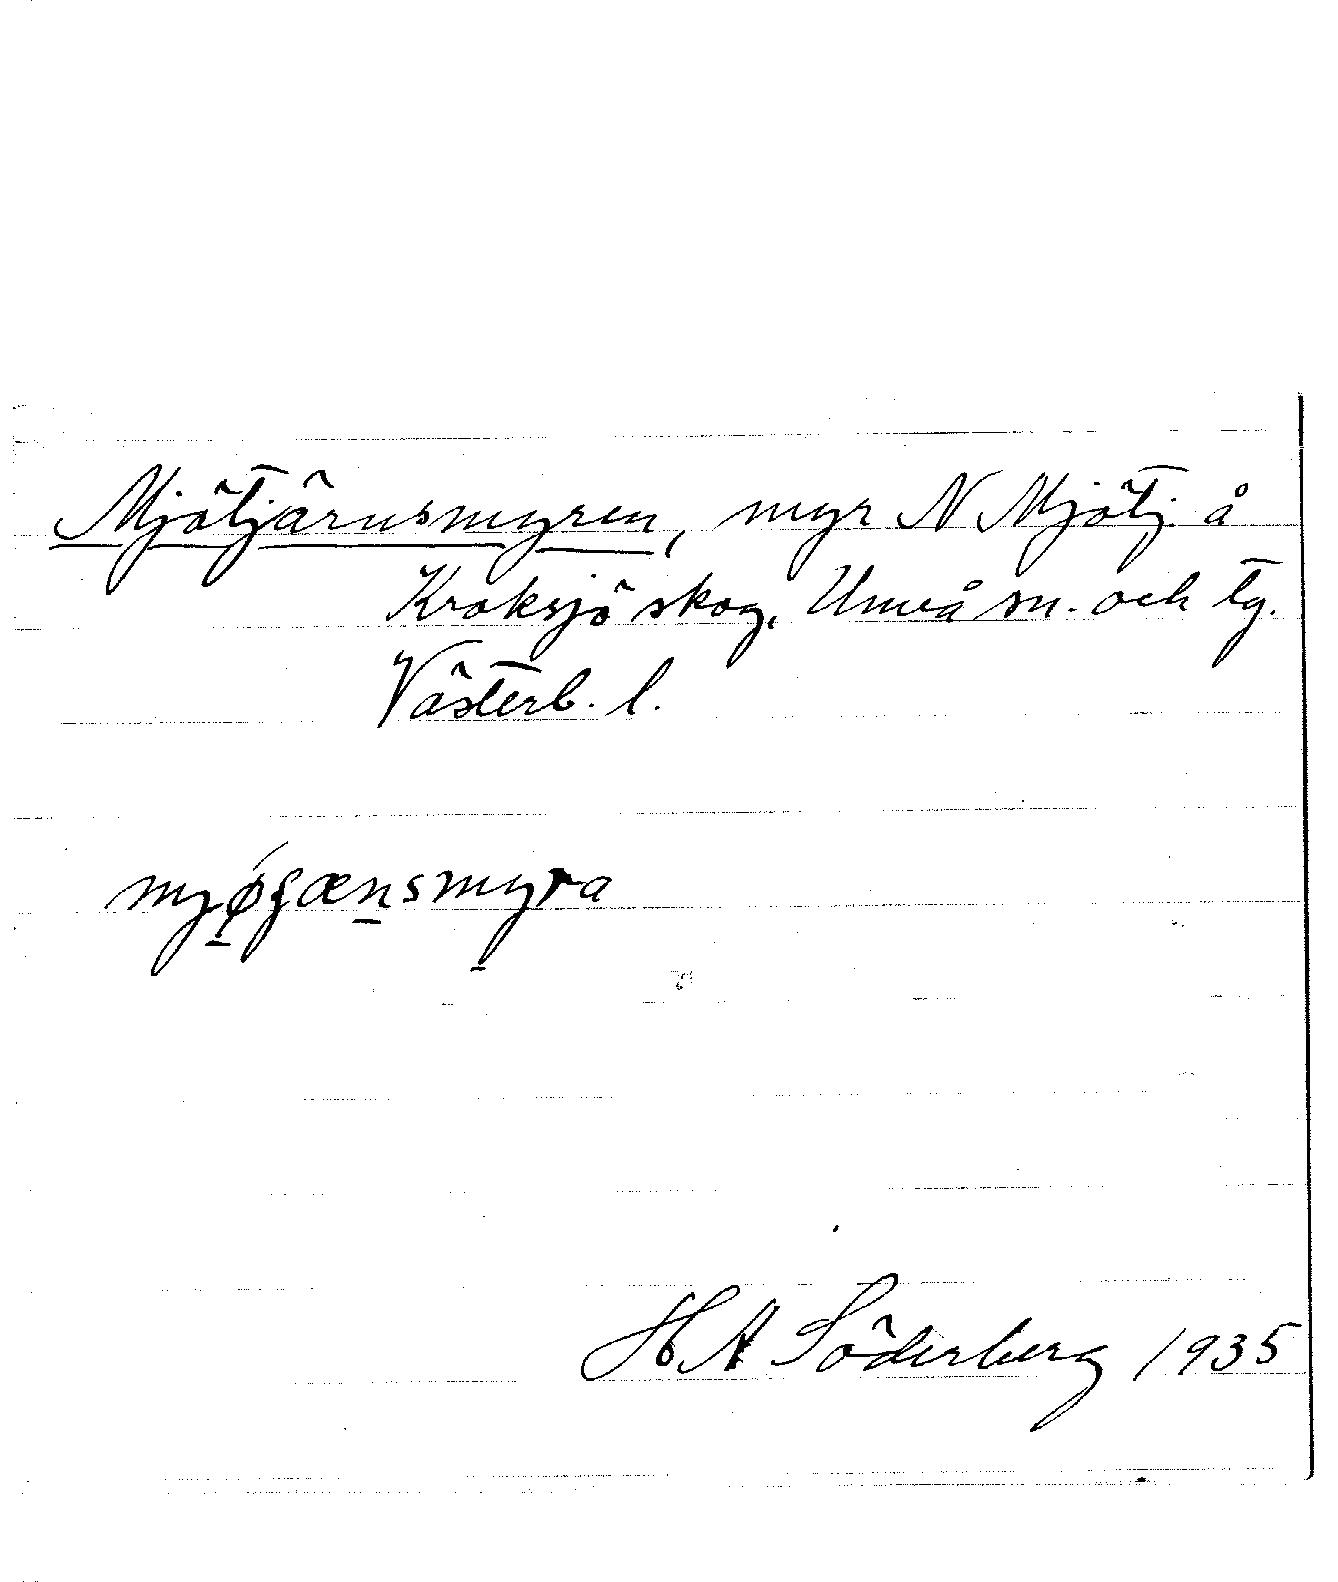 Mjötjärnsmyren, myr N Mjötj. å
Kroksjö skog, Umeå sn. och tg.
Västerb. l.
myø̱ʄæṉsmyra
H A Söderberg 1935